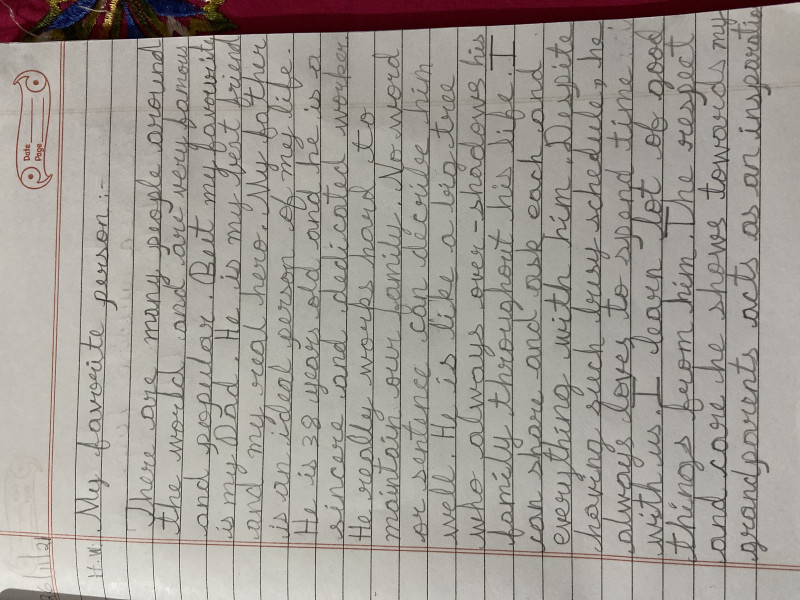 Date
Page
H.W. My favorite person :-
There are many people around
the world and are very famous
and popular. But my favourite
is my Dad. He is my first friend
and my real hero. My father
is an ideal person of my life.
He is 38 years old and he is a
sincere and dedicated worker.
He really works hard to
maintain our family. No word
or sentence can decribe him
well. He is like a big tree
who always over-shadows his
family throughout his life. I
can share and ask each and
everything with him. Despite
having such busy schedule, he
always loves to spend time
with us. I learn lot of good
things from him. The respect
and care he shows towards my
grandparents acts as an insparatio